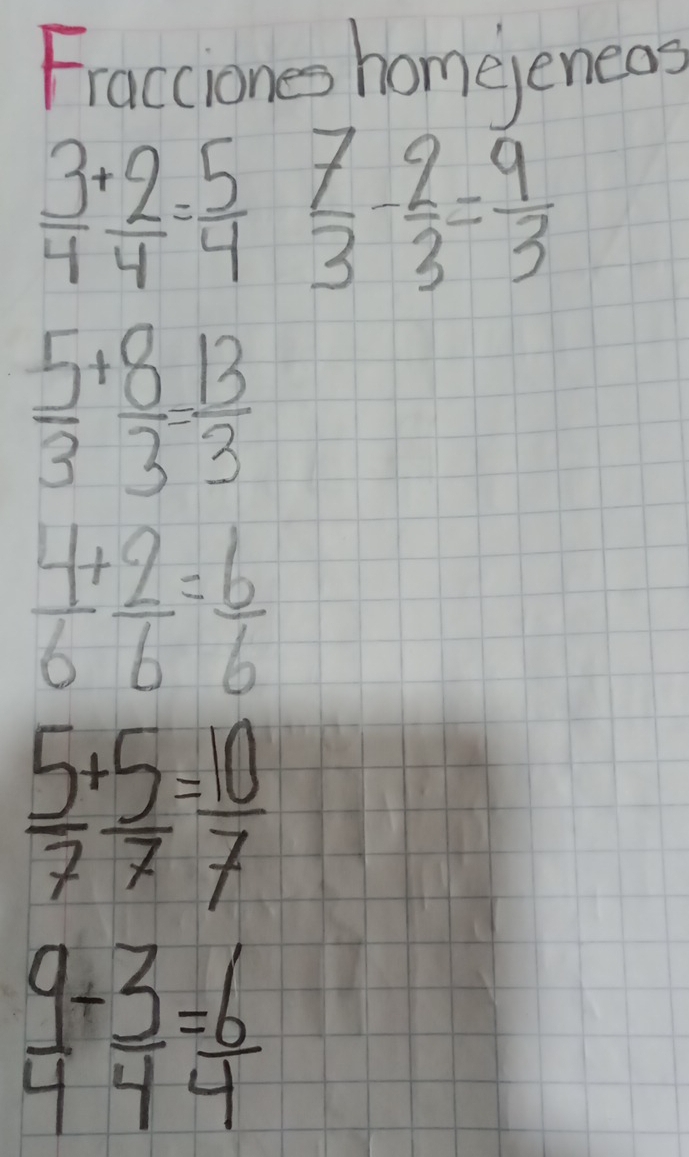 Fracciones homéjeneas
3/4 + 2/4 = 5/4 7/3 - 2/3 = 9/3
5/3 + 8/3 = 13/3
4/6 + 2/6 = 6/6
5/7 + 5/7 = 10/7
9/4 - 3/4 = 6/4